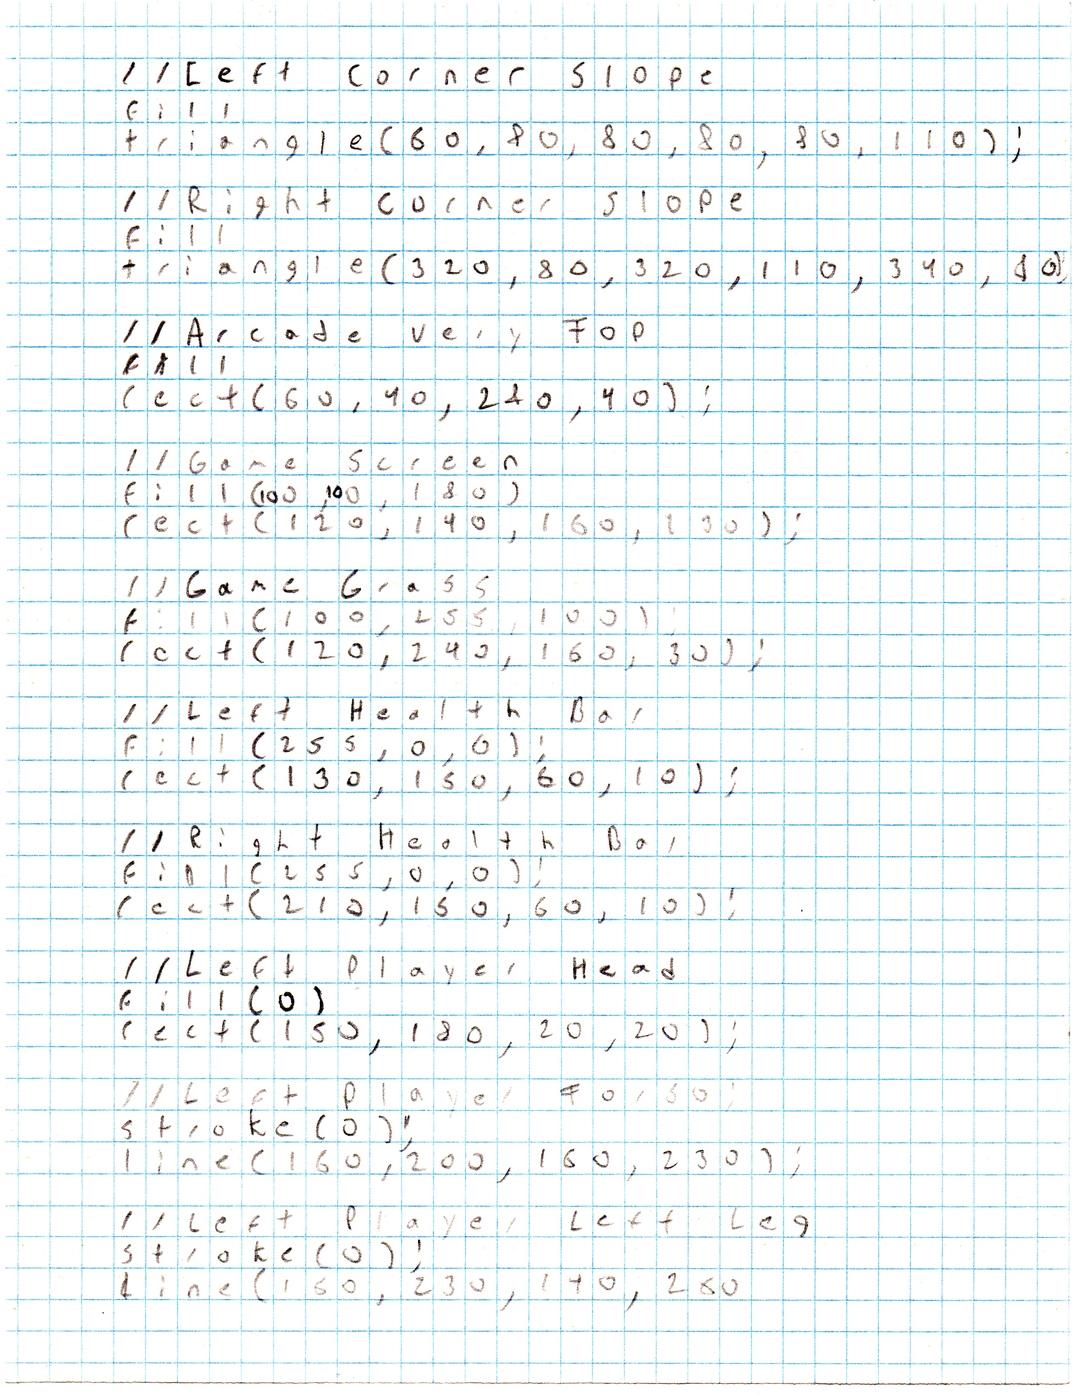 //Left Corner Slope
fill
triangle(60,80,80,80,80,110);
//Right Corner Slope
fill
triangle(320,80,320,110,340,80);
//Arcade Very Top
fill
rect(60,40,240,40);
//Game Screen
fill(100,100,180)
rect(120,140,160,130);
//Game Grass
fill(100,255,100);
rect(120,240,160,30);
//Left Health Bar
fill(255,0,0);
rect(130,150,60,10);
//Right Health Bar
fill(255,0,0);
rect(210,150,60,10);
//Left Player Head
fill(0)
rect(150,180,20,20);
//Left Player Torso
stroke(0);
line(160,200,160,230);
//Left Player Left Leg
stroke(0);
line(160,230,140,260